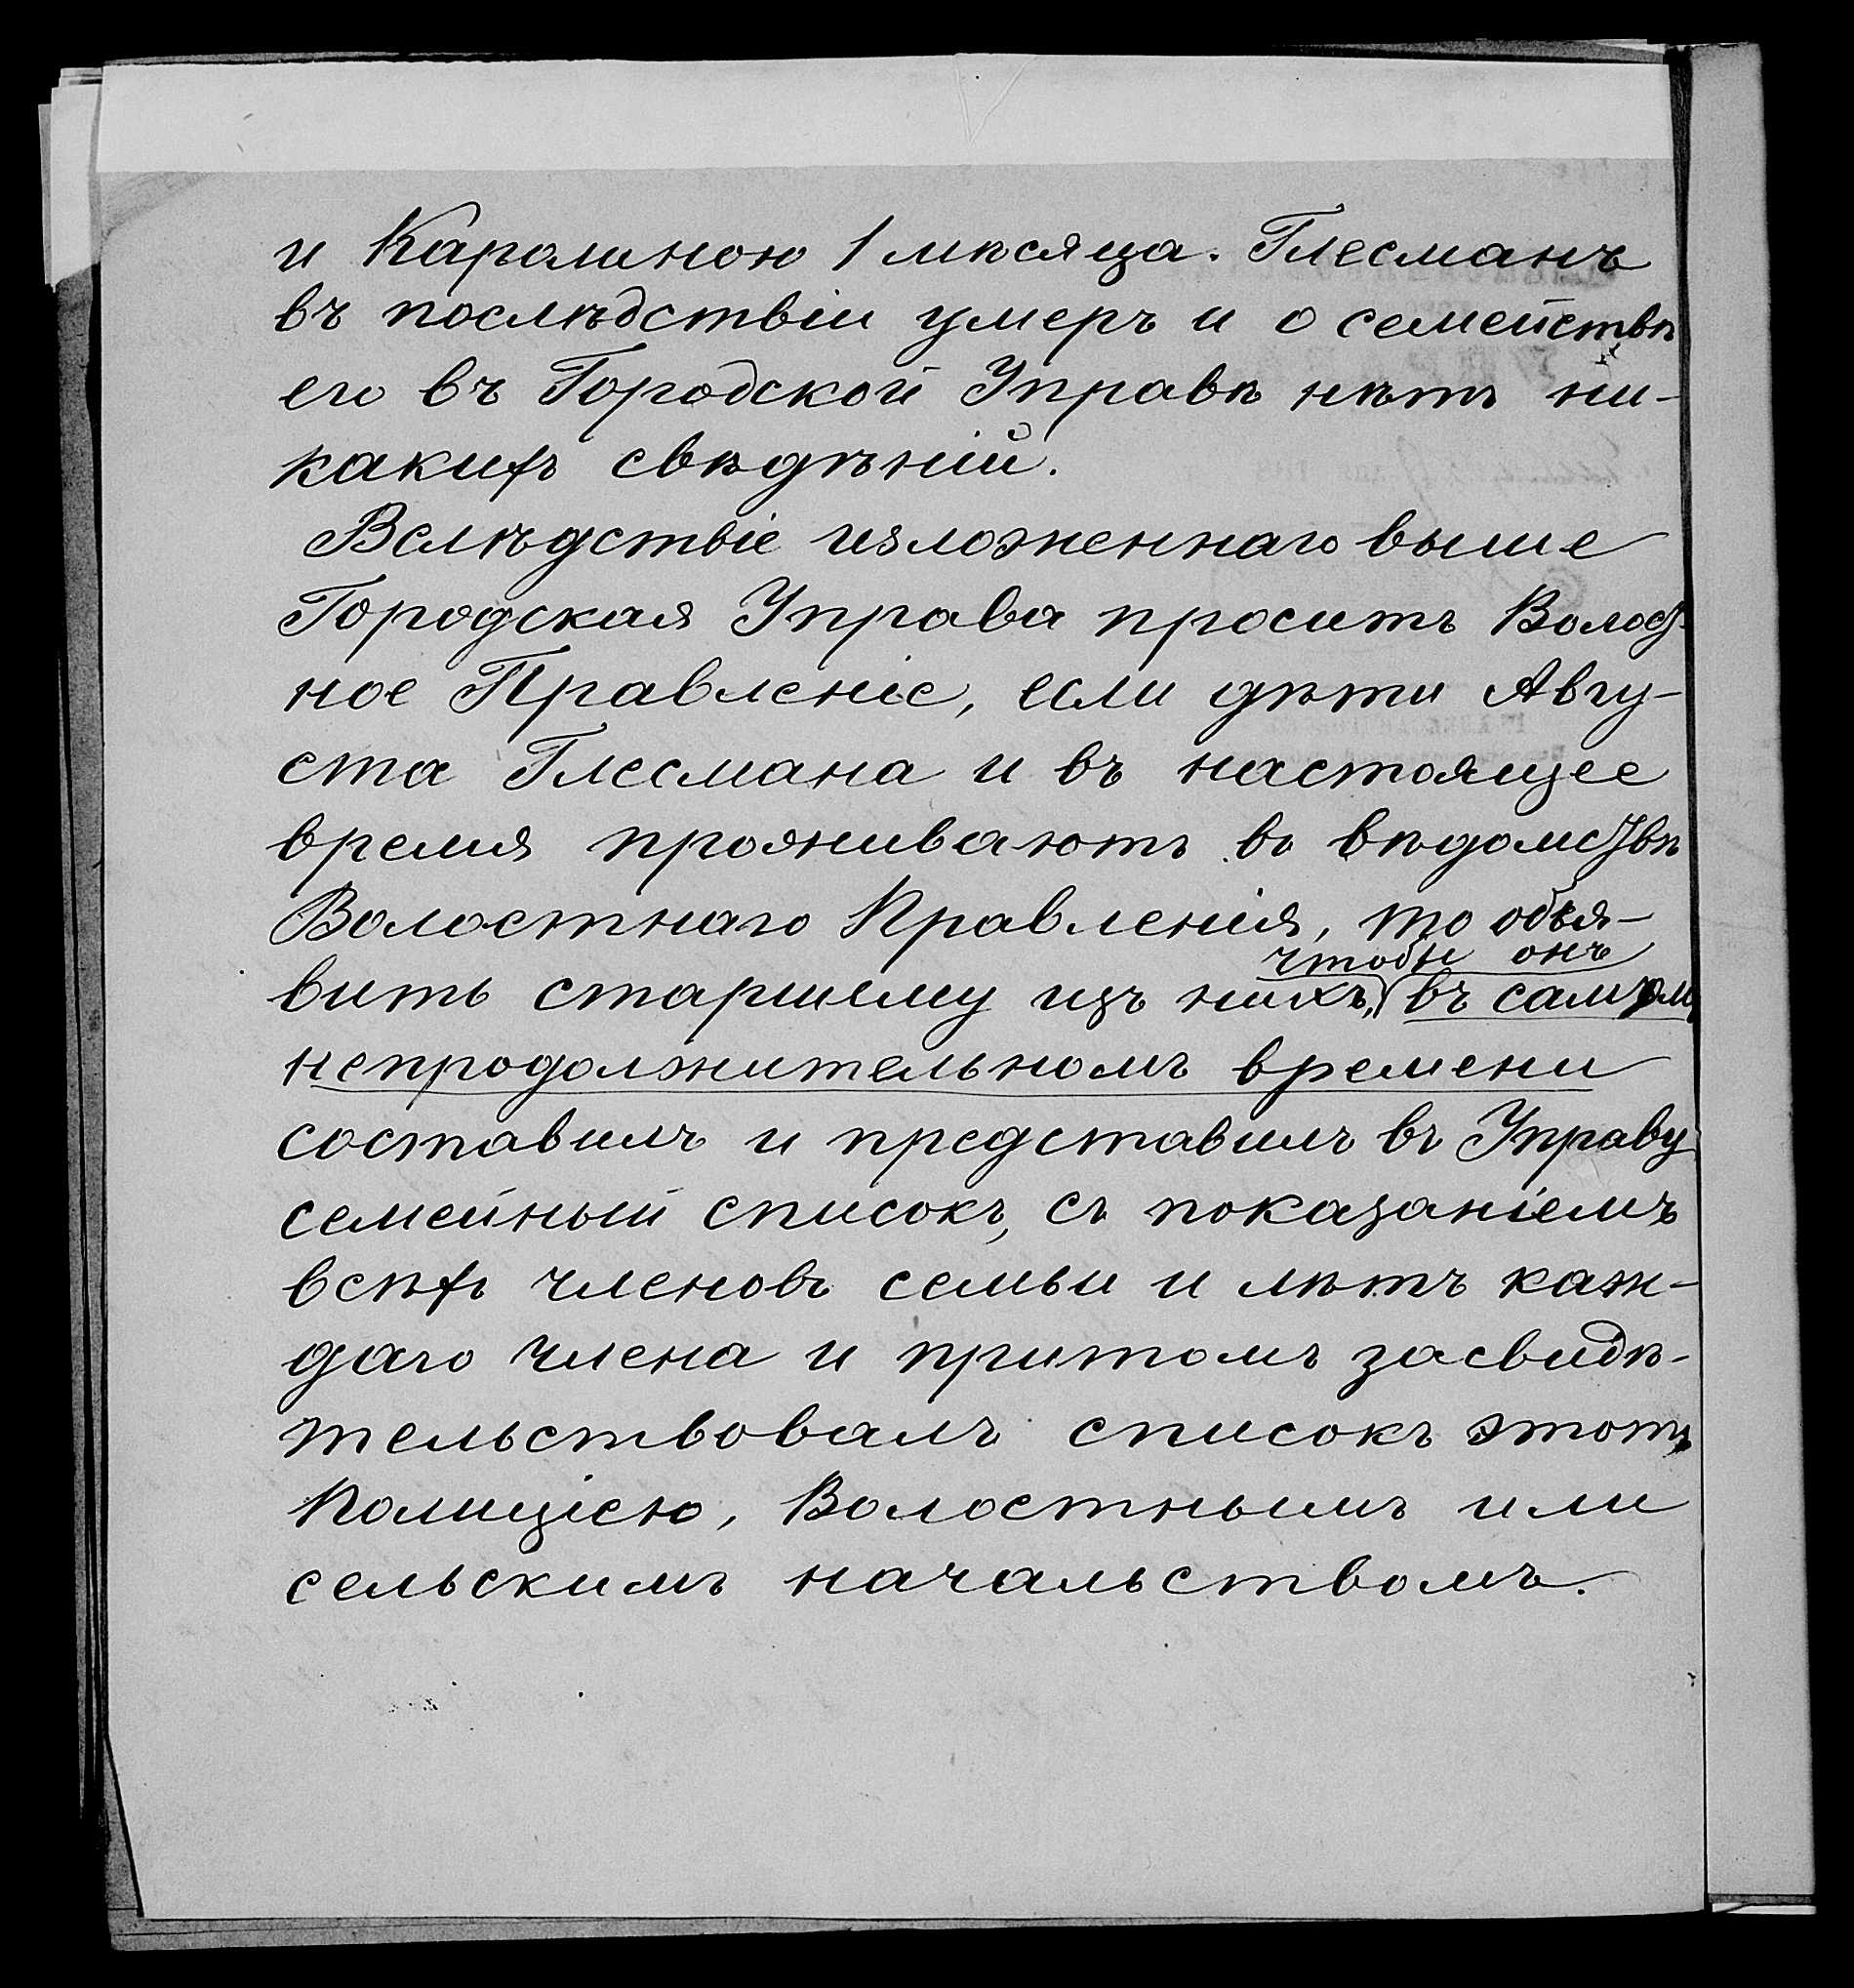 и Каролиною 1 мѣсяца. Глесманъ
въ послѣдствіи умеръ и о семействѣ
его въ Городской Управѣ нѣтъ ни-
какихъ свѣдѣній.
Вслѣдствіе изложеннаго выше
Городская Управа проситъ Волост-
ное Правленіе, если дѣти Авгу-
ста Глесмана и въ настоящее
время проживаютъ въ вѣдомствѣ
Волостнаго Правленія, то объя-
чтобы онъ
вить старшему изъ нихъ, въ самом
непродолжительномъ времени
составилъ и представилъ въ Управу
семейный списокъ, съ показаніемъ
всѣхъ членовъ семьи и лѣтъ каж-
даго члена и притомъ засвидѣ-
тельствовалъ списокъ этотъ
Полиціею, Волостнымъ или
сельскимъ начальствомъ.